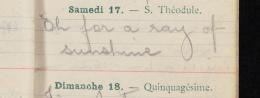 Samedi 17. — S. Théodule.
Oh for a ray of
sunshine
Dimanche 18. — Quinquagésime.